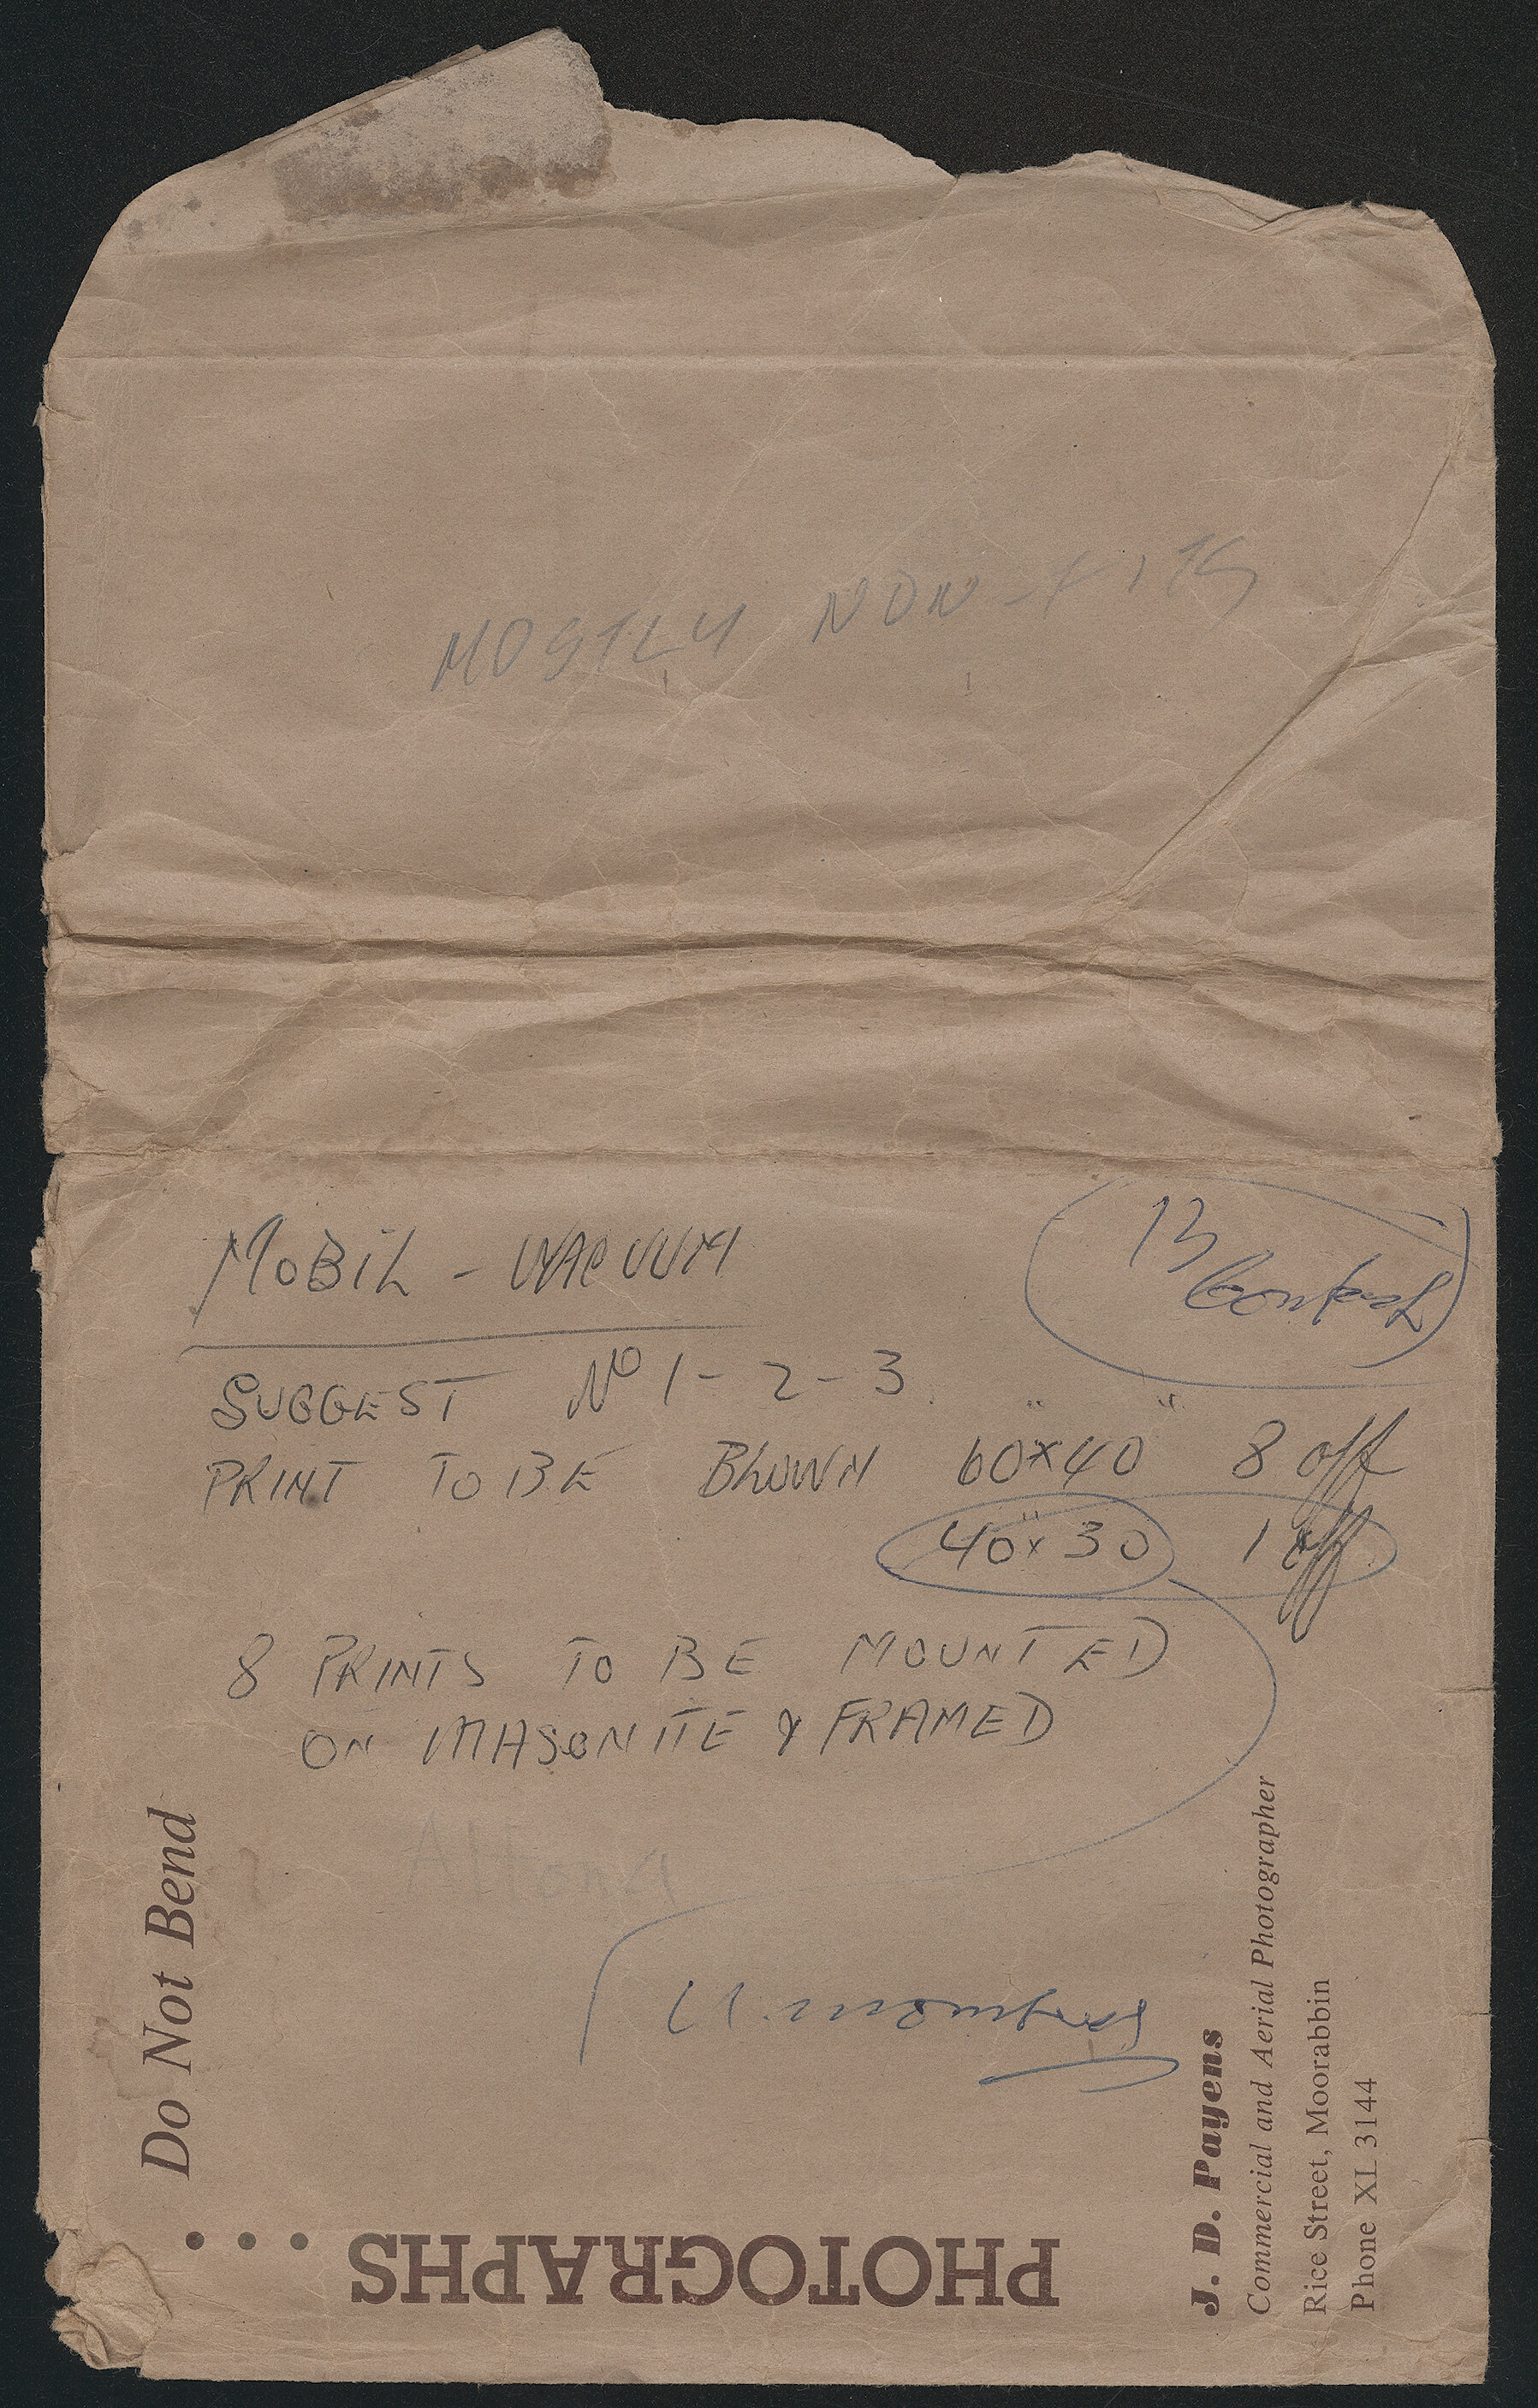 MOSTLY NON-
MOBIL - VACUUM
13
SUGGEST No 1 - 2 - 3.
PRINT TO BE BLOWN 60"x40" 8 off
40"x30" 1 off
8 PRINTS TO BE MOUNTED
ON MASONITE & FRAMED
Altona
Do Not Bend
PHOTOGRAPHS . . .
J. D. Payens
Commercial and Aerial Photographer
Rice Street, Moorabbin
Phone XL 3144